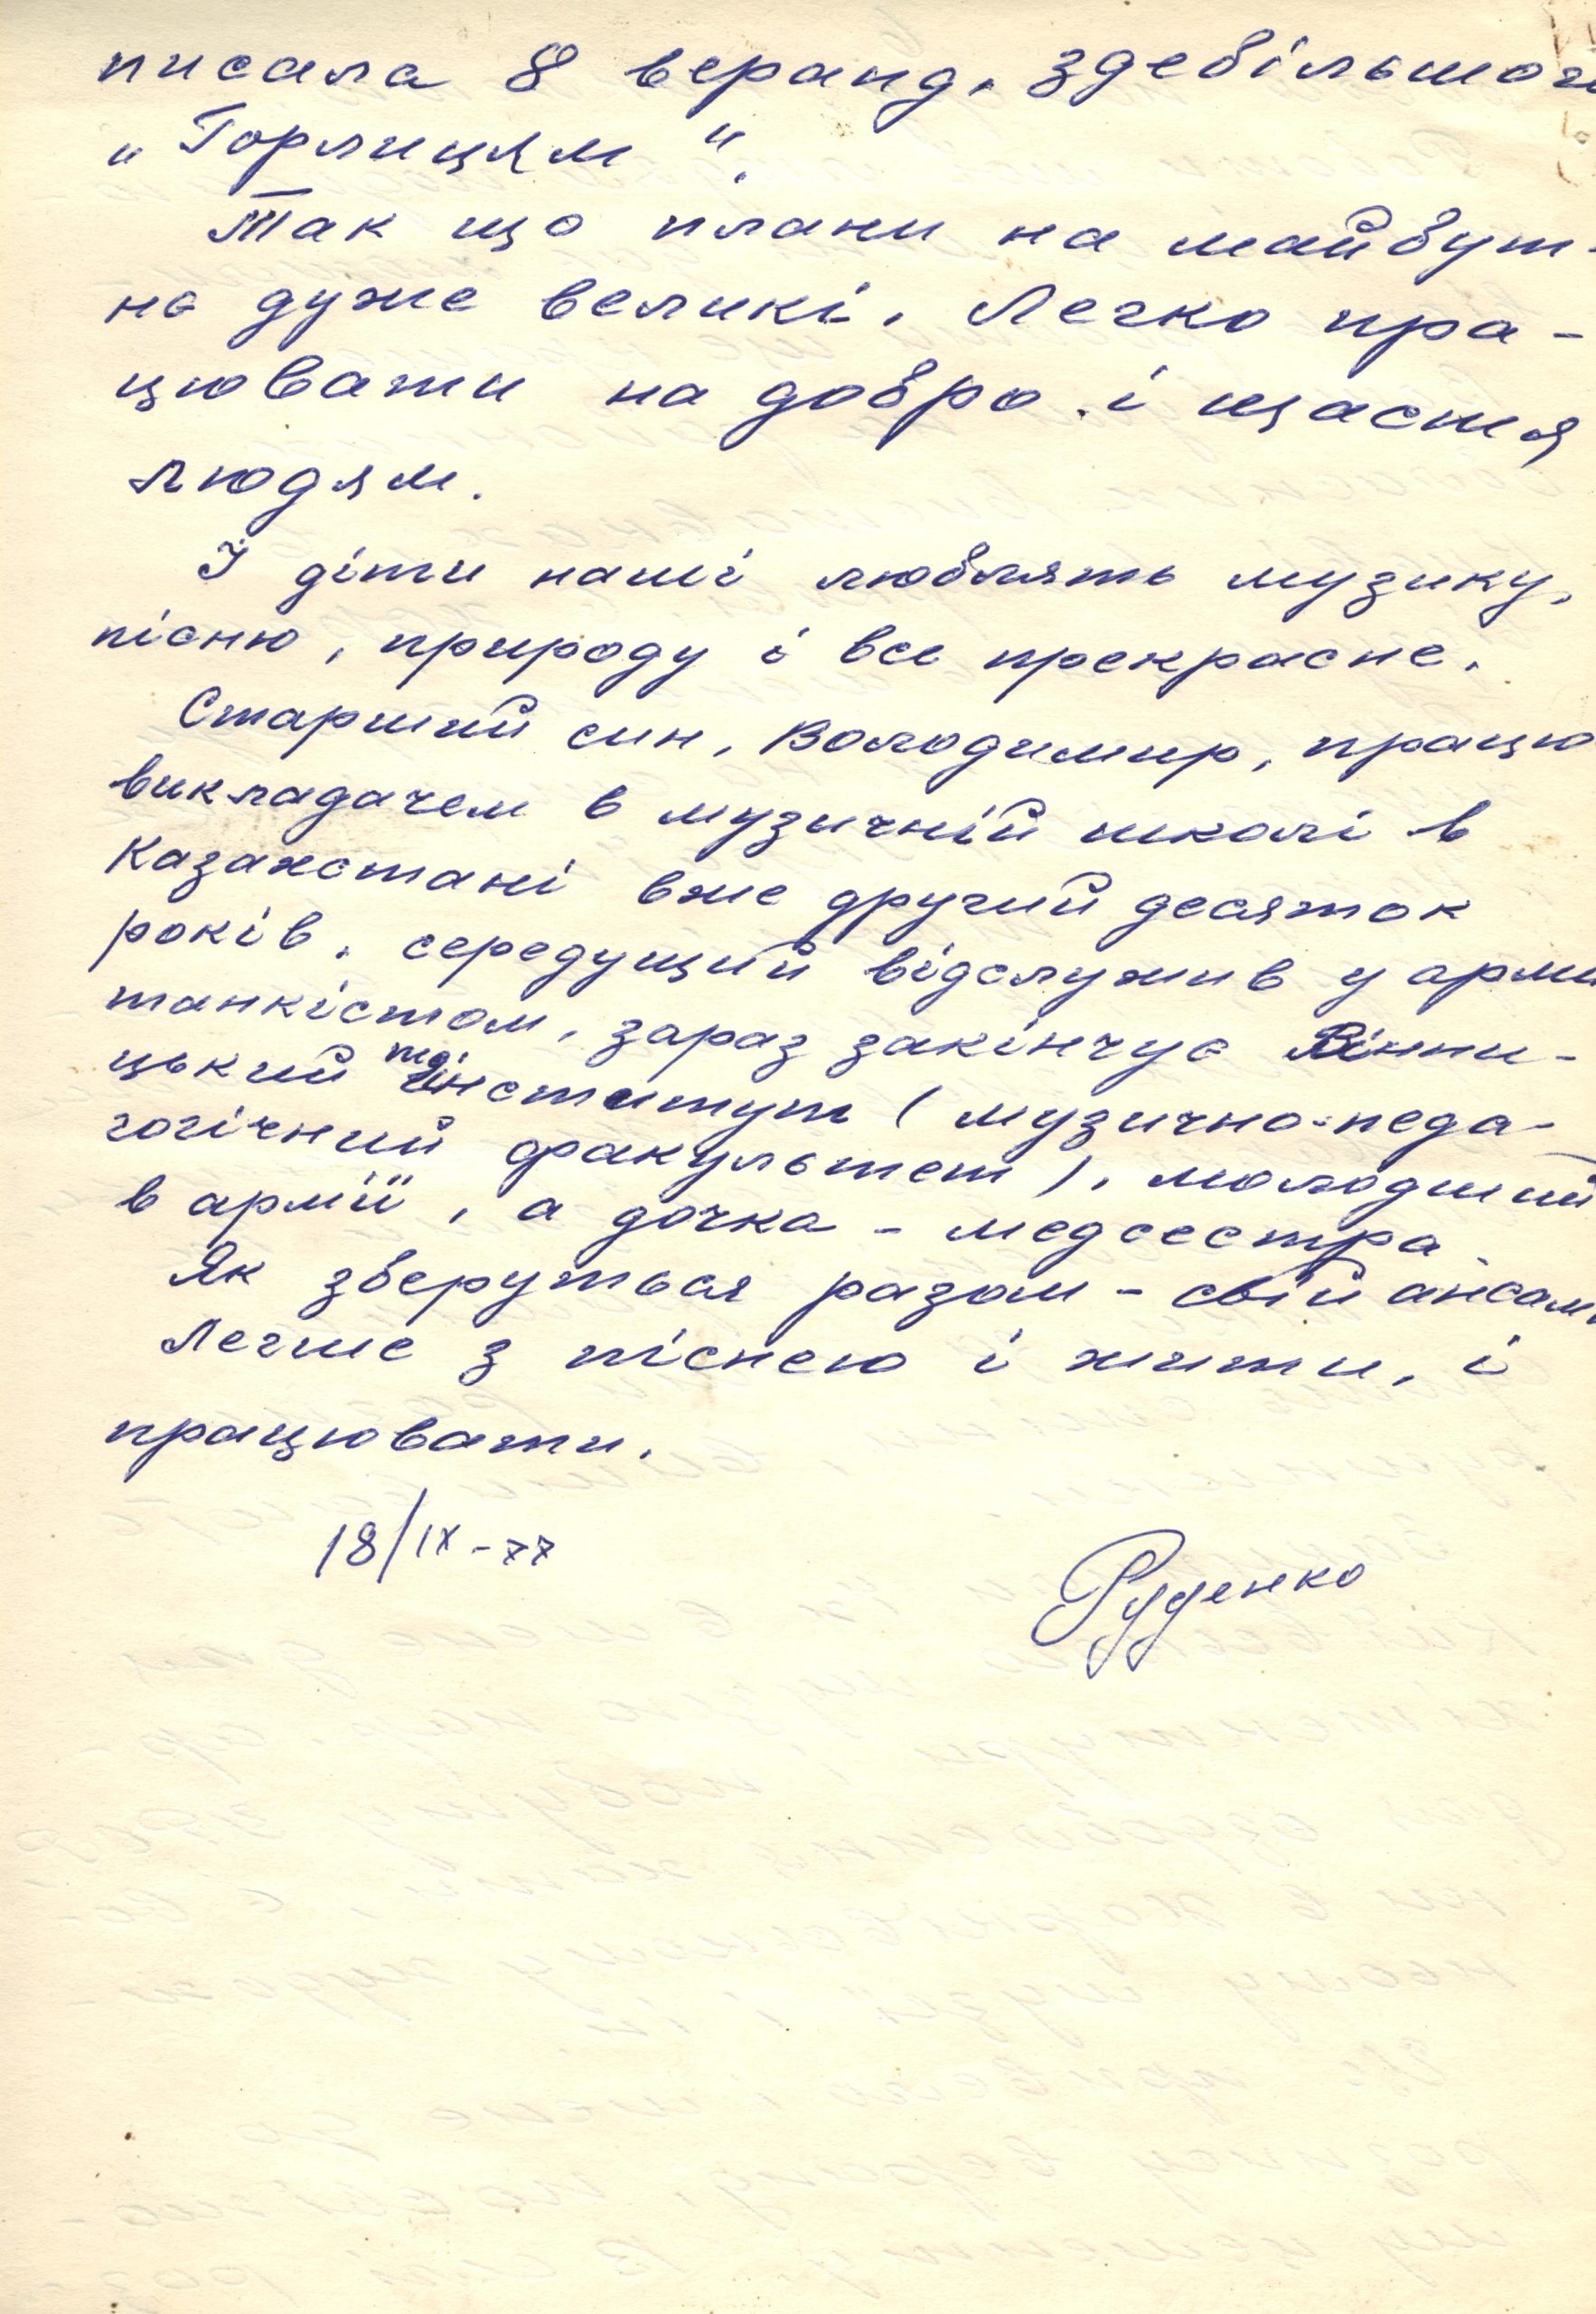 писала 8 веранд, здебільшого
„Горлицям“.
Так що плани на майбут-
нє дуже великі. Легко пра-
цювати на добро і щастя
людям.
І діти наші люблять музику,
пісню, природу і все прекрасне.
Старший син, Володимир, працю
викладачем в музичній школі в
Казахстані вже другий десяток
років, середущий відслужив у армії
танкістом, зараз закінчує Вінни-
цький інститут (музично-педа-
гогічний факультет), молодший
в армії, а дочка - медсестра.
Як зберуться разом - свій ансам
Легше з піснею і жити, і
працювати.
18/IX-77
Руденко